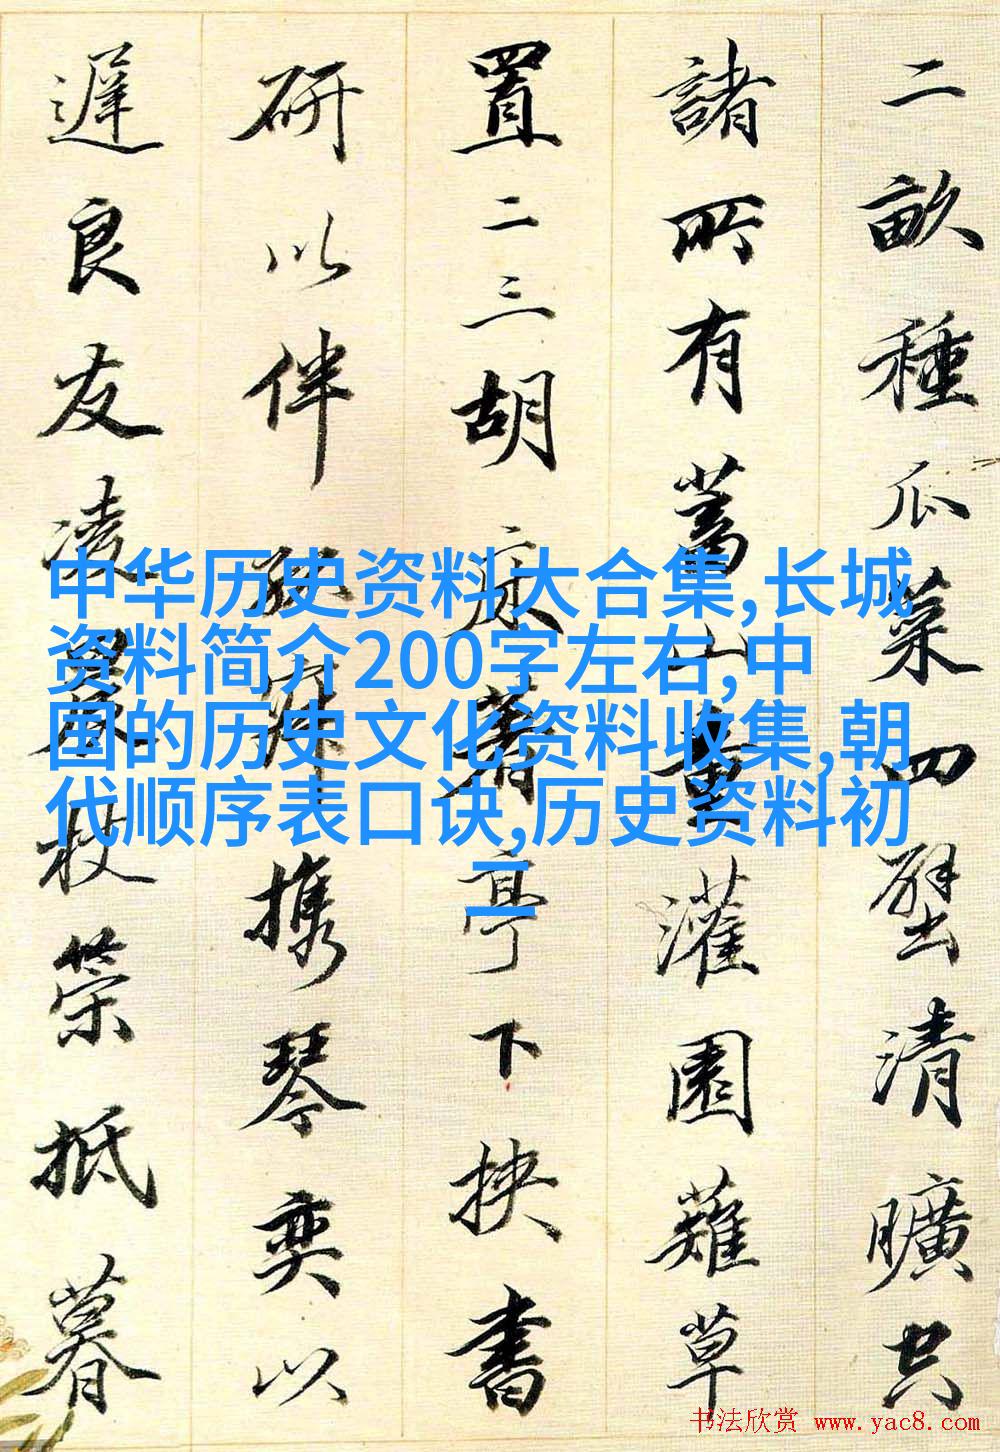 二畝種瓜菜四壁清曠共
諸所有蓄山童灌園薙草
置二三胡床著亭下挟書
研以伴孤寂携琴奕以
遲良友凌晨杖策抵暮
中华历史资料大合集,长城
资料简介200字左右,中
国的历史文化资料收集,朝
代顺序表口诀,历史资料初
二
书法欣赏 www.yac8.com